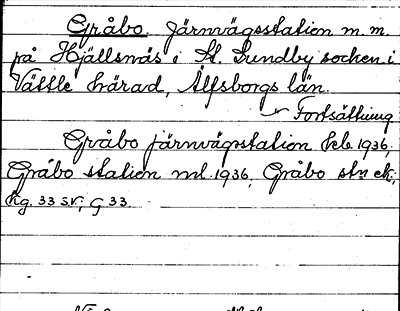 Gråbo, Järnvägsstation m.m.
på Hjällsnäs i St. Lundby socken i
Vättle härad, Älfsborgs län.
Fortsättning
Gråbo järnvägsstation heb. 1936,
Gråbo station ml. 1936, Gråbo stn ek.
kg. 33 SV, G 33.